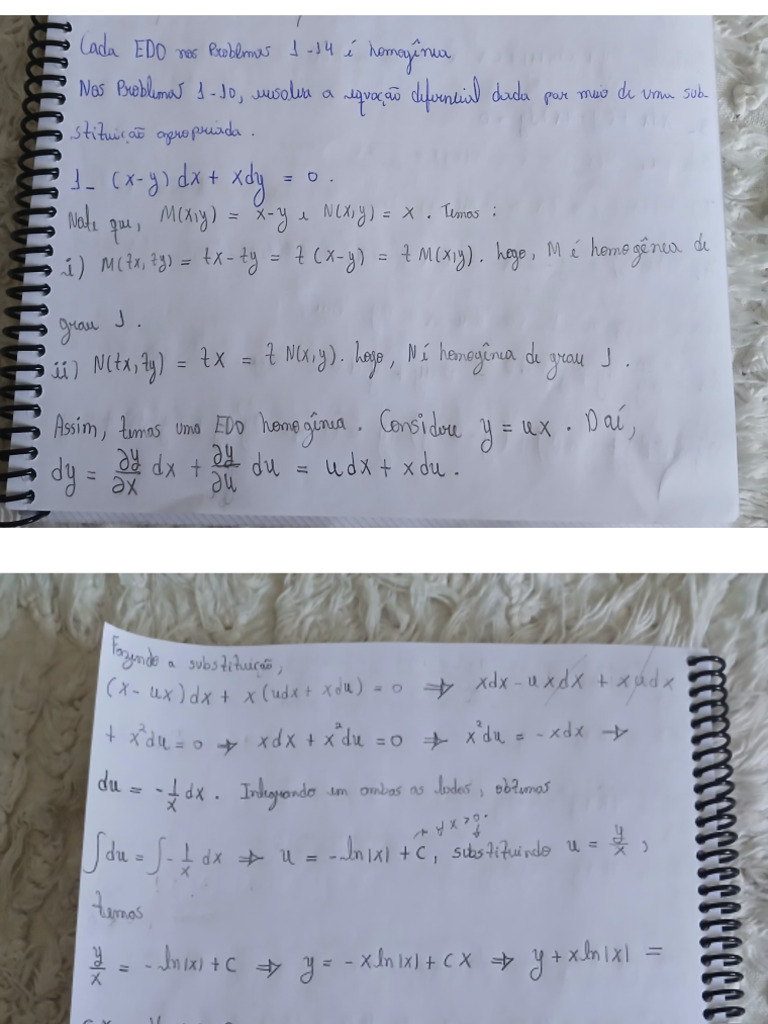 Cada EDO nos Problemas 1-14 é homogênea
Nos Problemas 1-10, resolva a equação diferencial dada por meio de uma sub-
stituição apropriada.
1- (x-y) dx + xdy = 0.
Note que, M(x,y) = x-y e N(x,y) = x. Temos:
i) M(tx,ty) = tx-ty = t(x-y) = t M(x,y). Logo, M é homogênea de
grau 1.
ii) N(tx,ty) = tx = t N(x,y). Logo, N é homogênea de grau 1.
Assim, temos uma EDO homogênea. Considere y = ux. Daí,
dy = ∂y/∂x dx + ∂y/∂u du = udx + xdu.
Fazendo a substituição,
(x-ux)dx + x(udx + xdu) = 0 ⇒ xdx - uxdx + xudx
+ x²du = 0 ⇒ xdx + x²du = 0 ⇒ x²du = -xdx ⇒
du = -1/x dx. Integrando em ambos os lados, obtemos
∀ x>0.
∫du = ∫-1/x dx ⇒ u = -ln|x| + C, substituindo u = y/x,
temos
y/x = -ln|x| + C ⇒ y = -xln|x| + Cx ⇒ y + xln|x| =